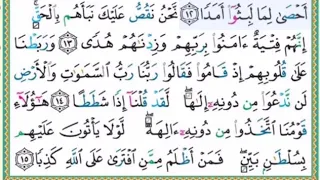 أَحْصَىٰ لِمَا لَبِثُوٓا۟ أَمَدًا ١٢ نَّحْنُ نَقُصُّ عَلَيْكَ نَبَأَهُم بِٱلْحَقِّ ۚ
إِنَّهُمْ فِتْيَةٌ ءَامَنُوا۟ بِرَبِّهِمْ وَزِدْنَٰهُمْ هُدًى ١٣ وَرَبَطْنَا
عَلَىٰ قُلُوبِهِمْ إِذْ قَامُوا۟ فَقَالُوا۟ رَبُّنَا رَبُّ ٱلسَّمَٰوَٰتِ وَٱلْأَرْضِ
لَن نَّدْعُوَا۟ مِن دُونِهِۦٓ إِلَٰهًا ۖ لَّقَدْ قُلْنَآ إِذًا شَطَطًا ١٤ هَٰٓؤُلَآءِ
قَوْمُنَا ٱتَّخَذُوا۟ مِن دُونِهِۦٓ ءَالِهَةً ۖ لَّوْلَا يَأْتُونَ عَلَيْهِم
بِسُلْطَٰنٍۭ بَيِّنٍ ۖ فَمَنْ أَظْلَمُ مِمَّنِ ٱفْتَرَىٰ عَلَى ٱللَّهِ كَذِبًا ١٥